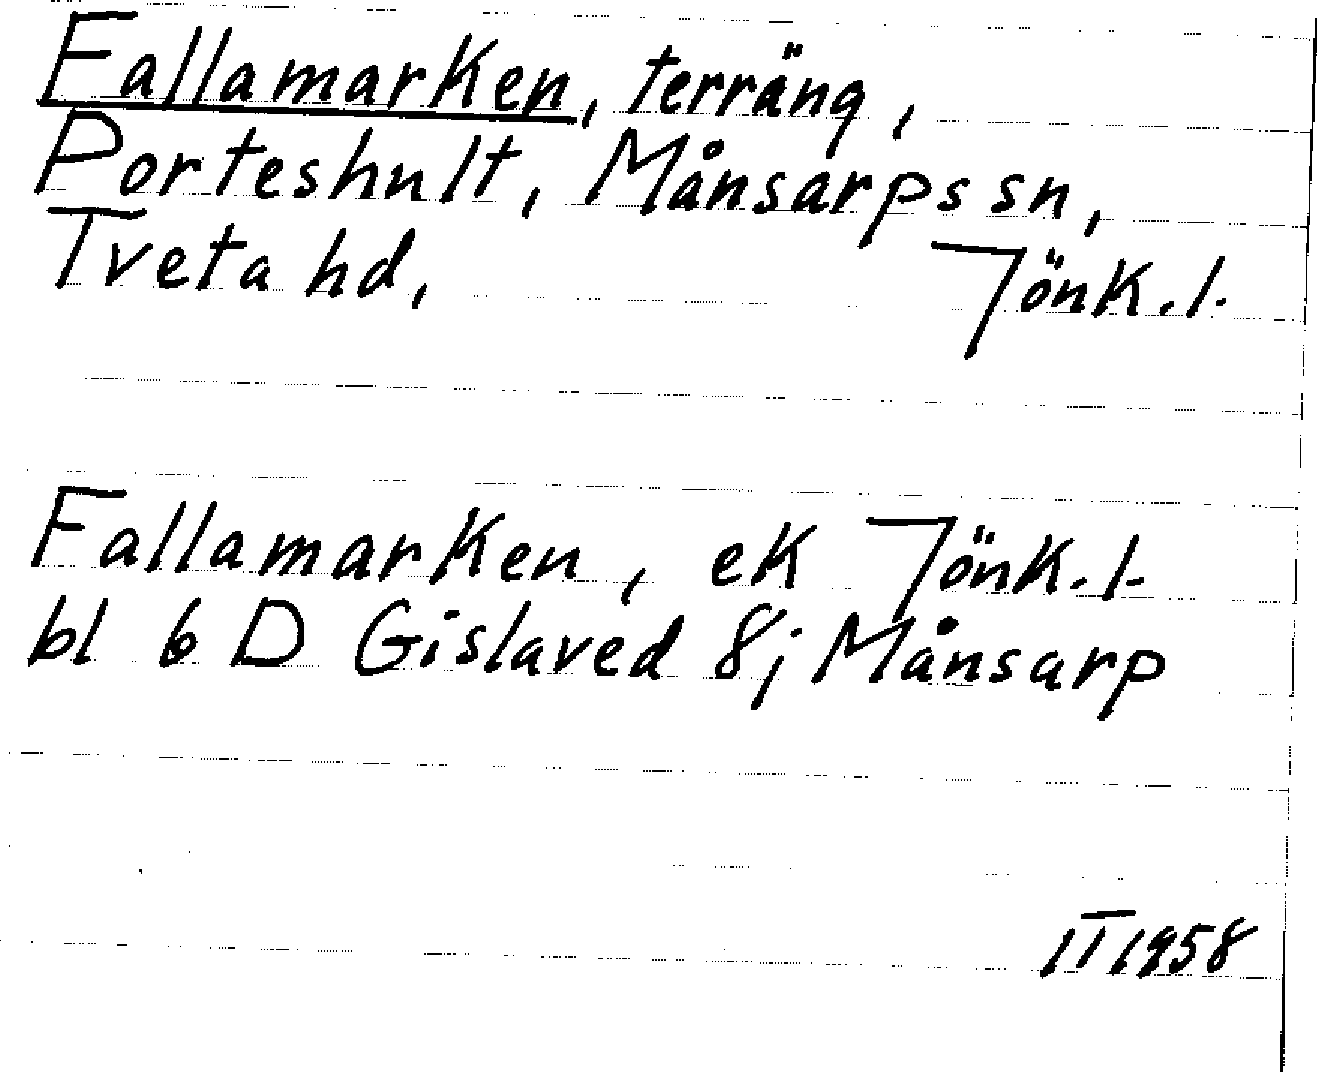 Fallamarken, terräng,
Porteshult, Månsarps sn,
Tveta hd, Jönk. l.
Fallamarken, ek Jönk. l.
bl 6 D Gislaved 8j Månsarp
IT 1958